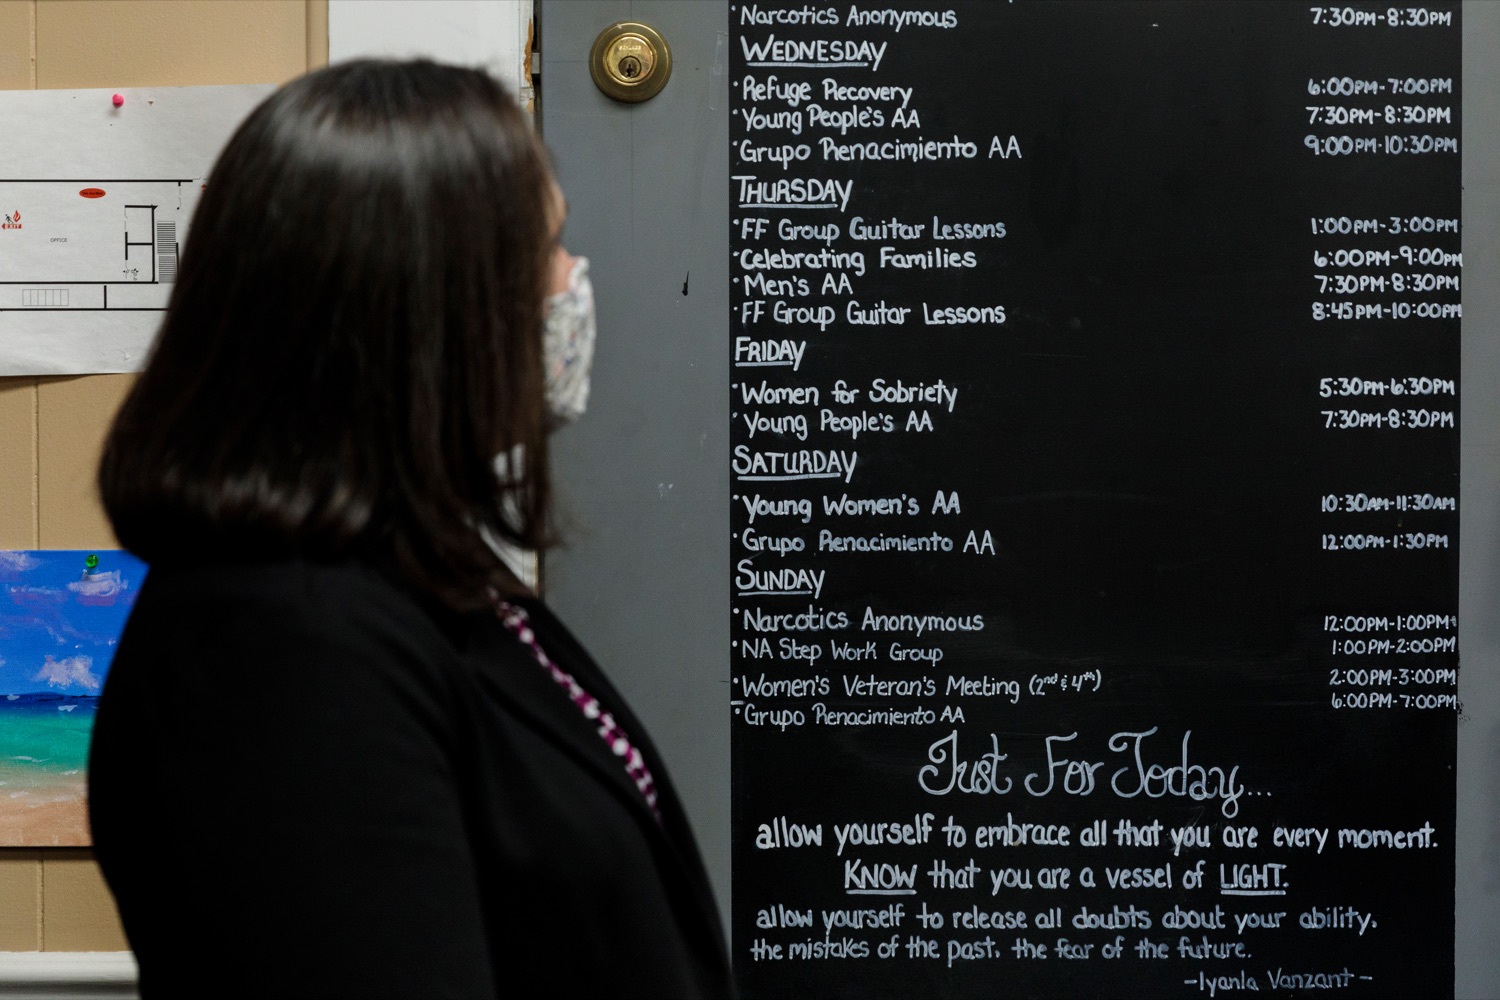 EXIT
OFFICE
• Narcotics Anonymous 7:30PM-8:30PM
WEDNESDAY
• Refuge Recovery 6:00PM-7:00PM
• Young People's AA 7:30PM-8:30PM
• Grupo Renacimiento AA 9:00PM-10:30PM
THURSDAY
• FF Group Guitar Lessons 1:00PM-3:00PM
• Celebrating Families 6:00PM-9:00PM
• Men's AA 7:30PM-8:30PM
• FF Group Guitar Lessons 8:45PM-10:00PM
FRIDAY
• Women for Sobriety 5:30PM-6:30PM
• Young People's AA 7:30PM-8:30PM
SATURDAY
• Young Women's AA 10:30AM-11:30AM
• Grupo Renacimiento AA 12:00PM-1:30PM
SUNDAY
• Narcotics Anonymous 12:00PM-1:00PM
• NA Step Work Group 1:00PM-2:00PM
• Women's Veteran's Meeting (2nd & 4th) 2:00PM-3:00PM
• Grupo Renacimiento AA 6:00PM-7:00PM
Just For Today...
allow yourself to embrace all that you are every moment.
KNOW that you are a vessel of LIGHT.
allow yourself to release all doubts about your ability,
the mistakes of the past, the fear of the future.
-Iyanla Vanzant-